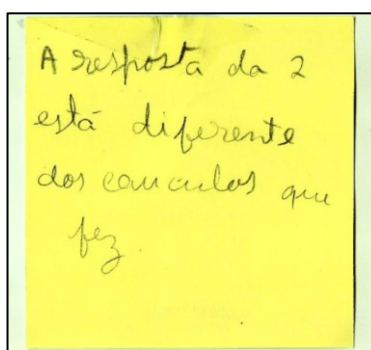 A resposta da 2
está diferente
dos cauculos que
fez.